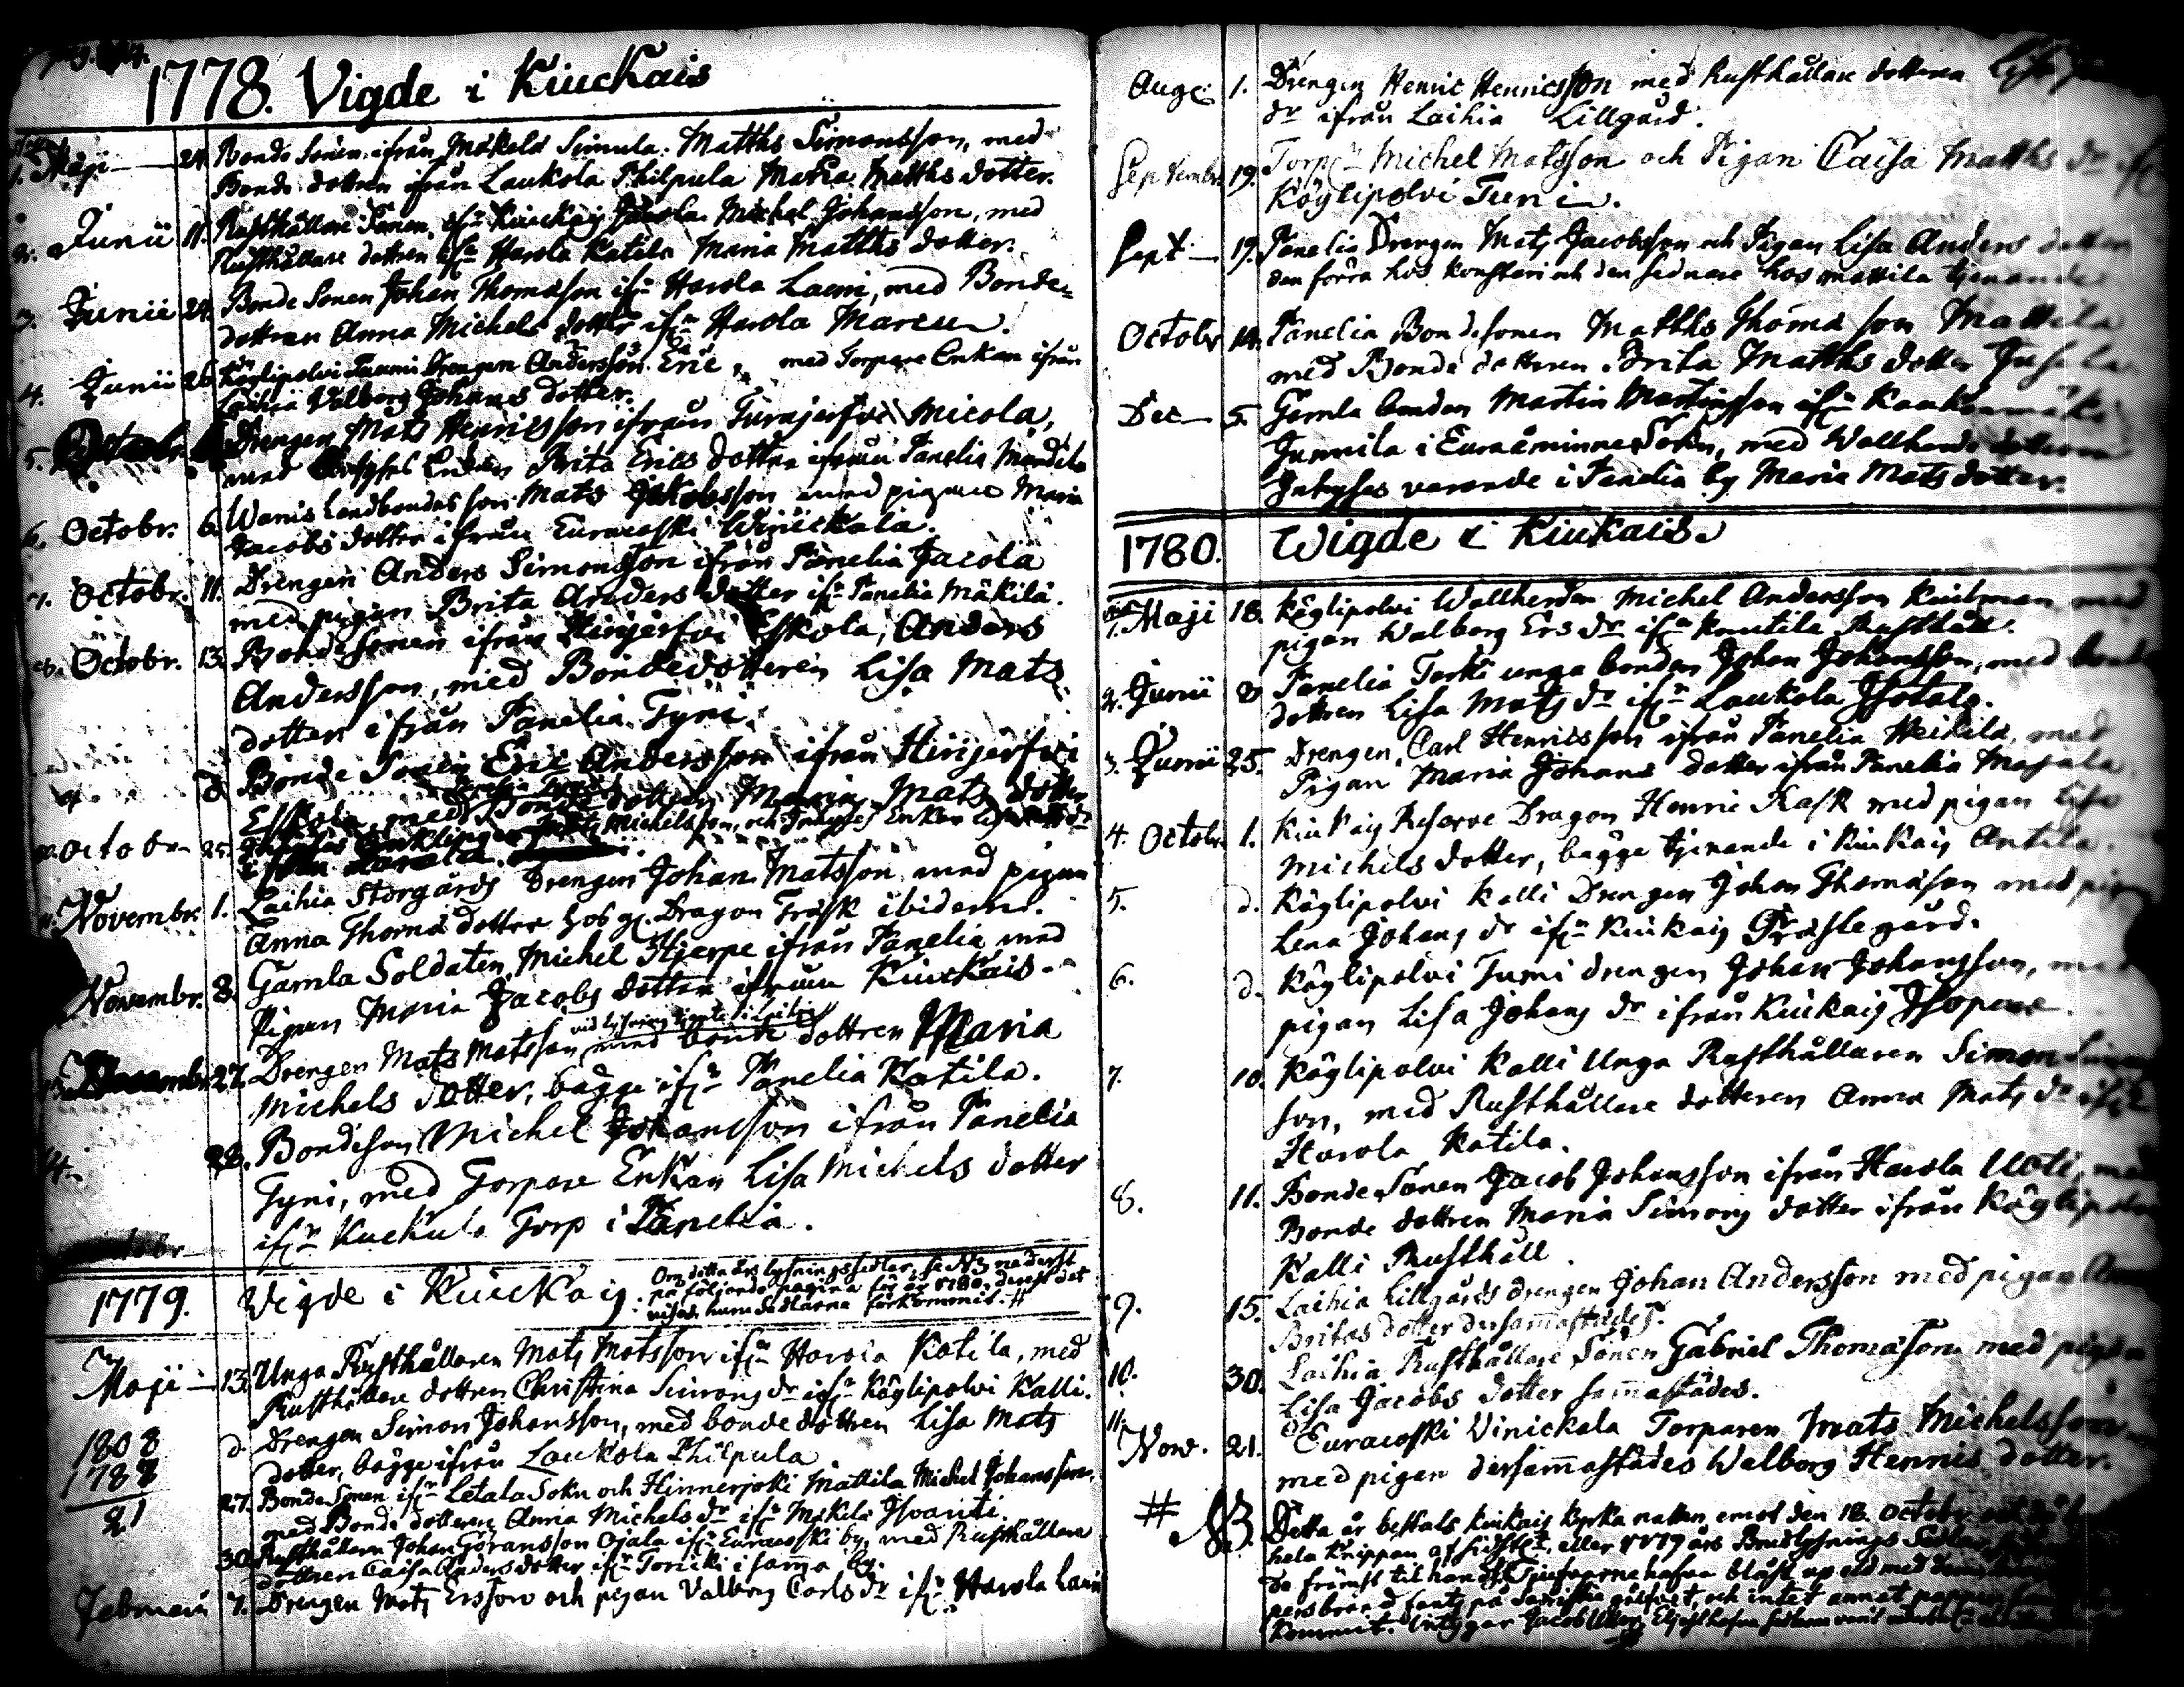 1778. Vigde i Kiuckais
1. Maji 24. Bonde Sonen ifrån Mäkelä Simula. Matths Simonsson, med
Bonde dottren ifrån Laukola Philpula Maria Matths dotter.
2. Junii 11. Rusthållare Sonen, ifrn Kiuckais Michel Johansson, med
Rusthållare dottren ifrn Harola Katila Maria Matths dotter.
3. Junii 24. Bonde Sonen Johan Thomasson ifrn Harola Laeni, med Bonde-
dottren Anna Michels dotter ifrn Harola Marcu.
4. Junii 26. Köylipolvi Tuumi Drengen Andersson Eric, med Torpare Enkan ifrån
Laihia Valborg Johans dotter.
5. Drengen Mats Henricsson ifrån Turajerfvi Micola,
med Enkan Brita Erics dotter ifrån Panelia
6. Octobr. 6. Landbondes son Mats Jakobsson med pigan Maria
Jacobs dotter ifrån Euracoski Winickala.
7. Octobr. 11. Drengen Anders Simonsson ifrån Panelia Jacola
med pigan Brita Anders dotter ifrn Panelia Mäkilä.
8. Octobr. 13. Bonde Sonen ifrån Hinjerfvi Eskola, Anders
Andersson, med Bondedotteren Lisa Mats
dotter ifrån Panelia Tyni.
9. d. Bonde Sonen Eric Andersson ifrån Hinjerfvi
Eskola, med Bonde dottren Maria Mats dotter
10. Octobr 25. Inhyses Enklingen Mats Michelsson, och Inhyses Enkan
ifrån Panelia.
11. Novembr. 1. Laihia Storgårds Drengen Johan Matsson med pigan
Anna Thomä dotter hos gl. Dragon Träsk ibidem.
Novembr. 8. Gamla Soldaten Michel Hjerpe ifrån Panelia med
Pigan Maria Jacobs dotter ifrån Kiuckais.
vid lysning
13. Decembr. 27. Drengen Mats Matsson med bonde dottren Maria
Michels dotter, bägge ifrn Panelia Katila.
14. 28. Bondeson Michel Johansson ifrån Panelia
Tyni, med Torpare Enkan Lisa Michels dotter
ifrn Kuckula Torp i Panelia.
1779. Vigde i Kiuckais. Om detta års lysningssedlar, se NB nederst
på följande pagina för år 1780, derest det
visas huru Sedlarna förkommit. #
Maji 13. Unga Rusthållaren Mats Matsson ifrn Harola Katila, med
Rusthållare dottren Christina Simons dr ifrn Köylipolvi Kalli.
d. Drengen Simon Johansson, med bonde dottren Lisa Mats
dotter, bägge ifrån Laukola Philpula
1808
1788
21
27. Bonde Sonen ifrn Letala Sokn och Hinnerjoki Mattila Michel Johansson,
med Bonde dotteren Anna Michels dr ifrn Mäkilä Isvaniti.
30. Rusthållaren Johan Göransson Ojala ifrn Euracoski by, med Rusthållare
dottren Caisa Anders dotter ifrn Torniki i samma by.
Februari 7. Drengen Mats Ersson och pigan Valborg Carls dr ifrn Harola Lauri
Aug. 1. Drengen Henric Henricsson med Rusthållare dotteren Lisa
dr ifrån Laihia Lillgård.
Septembr. 19. Torp. Michel Matsson och Pigan Caisa Matths dr
Köylipolvi Tuni.
Sept 19. Panelia Drengen Mats Jacobsson och Pigan Lisa Anders dotter
den förra hos Konstari och den sednare hos Mattila tjenande
Octobr 14. Panelia Bondesonen Matths Thomä son Mattila
med Bonde dottren Brita Matths dotter
Dec 5. Gamla bonden Martin Martinsson ifrn
Junnila i Euraåminne Sokn, med Wallherde dotteren
Inhyses varande i Panelia by Maria Mats dotter.
1780. Wigde i Kiukais.
1. Maji 18. Köylipolvi Wallherden Michel Andersson Kiulman med
pigan Walborg Ers dr ifrn Knutila Rusthåll.
2. Junii Panelia Torki unga bonden Johan Johansson, med bonde
dottren Lisa Mats dr ifrn Laukola Isotalo.
3. Junii 25. Drengen Carl Henricsson ifrån Panelia Heikilä, med
Pigan Maria Johans dotter ifrån Panelia Majala
4. Octobr. 1. Kiukais Reserve Dragon Henric Rask med pigan Lisa
Michels dotter, bägge tjenande i Kiukais Antila.
5. d. Köylipolvi Kalli Drengen Johan Thomasson med pigan
Lena Johans dr ifrn Kiukais Prästegård.
6. d. Köylipolvi Tumi drengen Johan Johansson, med
pigan Lisa Johans dr ifrån Kiukais
7. 10. Köylipolvi Kalli Unga Rusthållaren Simon
son, med Rusthållare dotteren Anna Mats dr ifrn
Harola Katila.
8. 11. Bonde Sonen Jacob Johansson ifrån Harola Uoti, med
Bonde dottren Maria Simons dotter ifrån Köylipolvi
Kalli Rusthåll.
9. 15. Laihia Lillgårds drengen Johan Andersson med pigan
Britas dotter dersammastädes.
10. 30. Laihia Rusthållare Sonen Gabriel Thomasson med pigan
Lisa Jacobs dotter sammastädes.
11. Nov. 21. Euracoski Vinickala Torparen Mats Michelsson
med pigan dersammastädes Walborg Henrics dotter.
# NB. Detta år bestals Kiukais Kyrka natten emot den 18. Octobr
hela Knippan af eller 1779 års Brudlysnings Sedlar
de främst til hands Tjufvarne hafva blåst up eld med
pers brand fants på Sacristie golfvet, och intet annat papper
kommit. Intygar Jacob